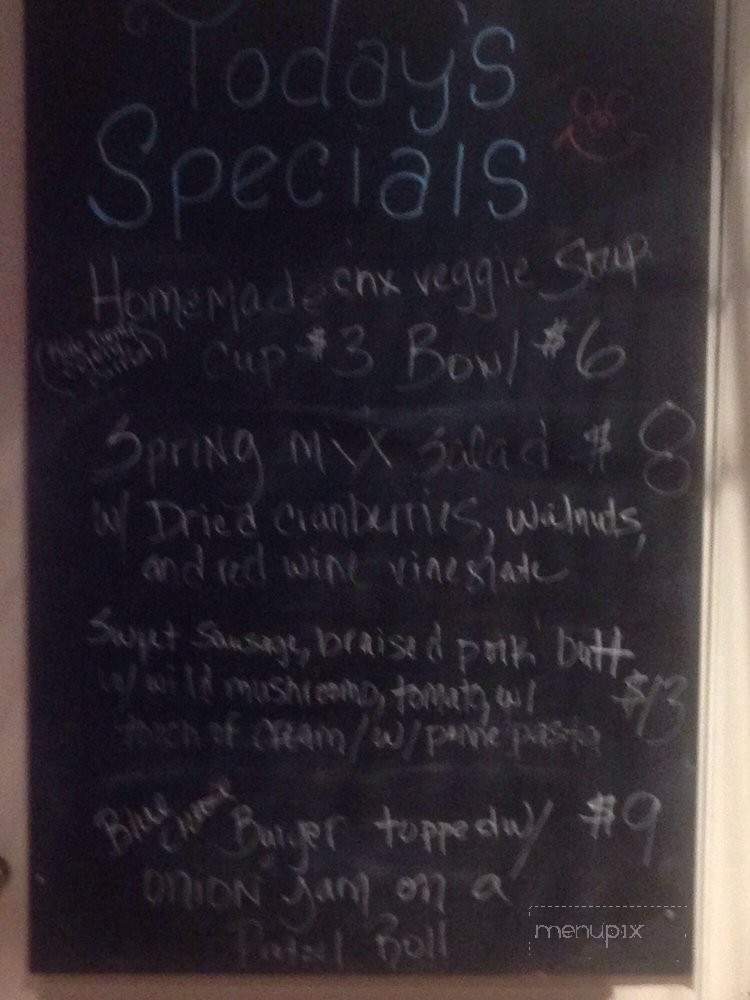 Today's
Specials
Homemade cnx veggie Soup
cup $3 Bowl $6
Spring mix Salad $8
w/ Dried cranberries, walnuts,
and red wine
Sweet Sausage, braised pork butt
w/ wild mushrooms, tomato, w/ $13
touch of cream / w/ penne pasta
Blue cheese Burger topped w/ $9
onion jam on a
Roll
menupix